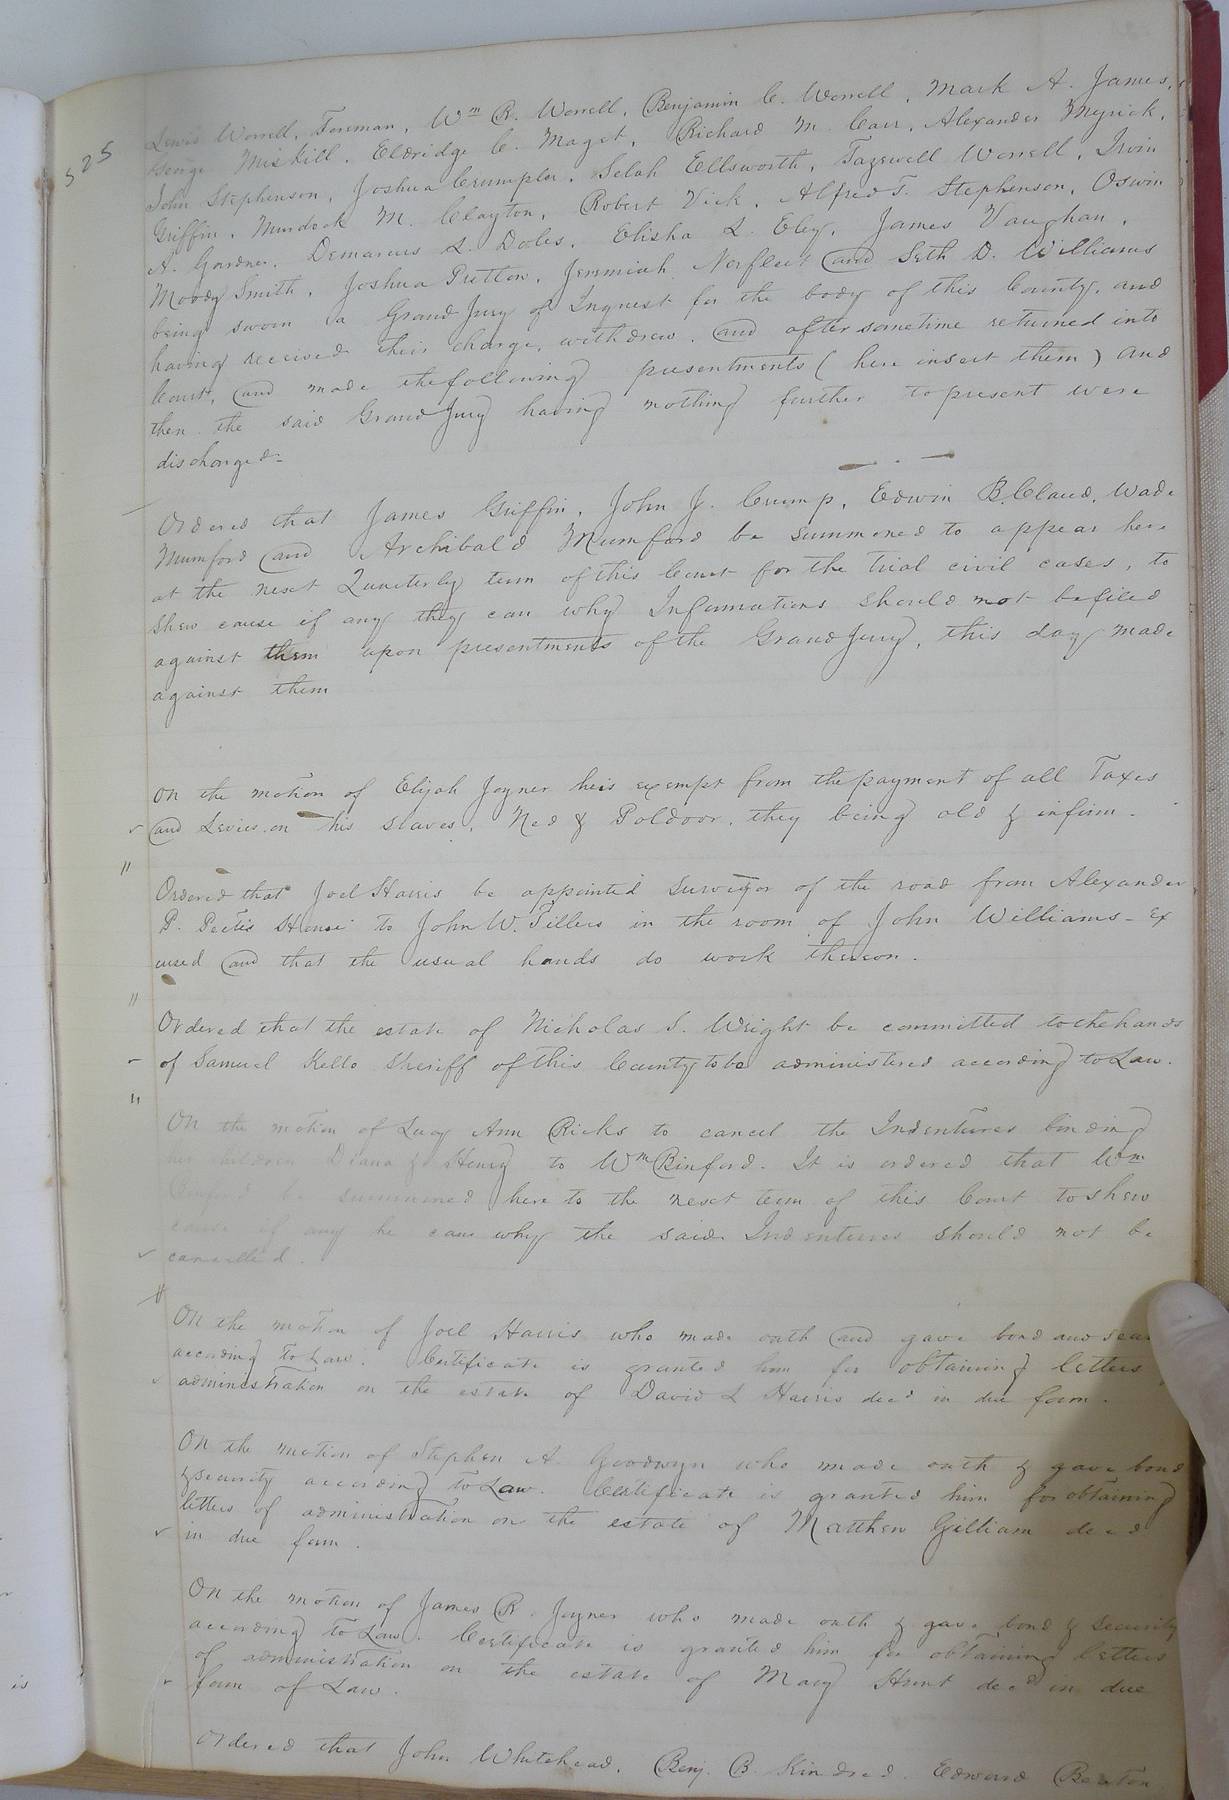 525
Lewis Worrell, Foreman, Wm R. Worrell, Benjamin C. Worrell, Mark A. James,
George Miskill, Eldridge C. Maget, Richard M. Carr, Alexander Myrick,
John Stephenson, Joshua Crumpler, Selah Ellsworth, Tazewell Worrell, Irvin
Griffin, Murdock M. Clayton, Robert Vick, Alfred T. Stephenson, Oswin
A. Gardner, Demarcus L. Doles, Elisha L. Eley, James Vaughan,
Moody Smith, Joshua Pretlow, Jeremiah Norfleet and Seth D. Williams
being sworn a Grand Jury of Inquest for the body of this County, and
having received their charge, withdrew, and after sometime returned into
Court, and made the following presentments (here insert them) and
then the said Grand Jury having nothing further to present were
discharged-
Ordered that James Griffin, John J. Crump, Edwin B. Claud, Wade
Mumford and Archibald Mumford be summoned to appear here
at the next Quarterly term of this Court for the trial civil cases, to
shew cause if any they can why Informations should not be filed
against them upon presentments of the Grand Jury, this day made
against them
On the motion of Elijah Joyner he is exempt from the payment of all Taxes
and Levies on his slaves, Ned & Poldoor, they being old & infirm.
"
Ordered that Joel Harris be appointed surveyor of the road from Alexander
P. Peetes House to John W. Tillers in the room of John Williams - Ex
cused and that the usual hands do work thereon.
"
Ordered that the estate of Nicholas S. Wright be committed to the hands
of Samuel Kello Sheriff of this County to be administered according to Law.
"
On the motion of Lucy Ann Ricks to cancel the Indentures binding
her children Diana & Henry to Wm Binford. It is ordered that Wm
Binford be summoned here to the next term of this Court to shew
cause if any he can why the said Indentures should not be
cancelled.
On the motion of Joel Harris who made oath and gave bond and
according to Law. Certificate is granted him for obtaining letters
administration on the estate of David L Harris decd in due form.
On the motion of Stephen A. Goodwyn who made oath & gave bond
& security according to Law. Certificate is granted him for obtaining
letters of administration on the estate of Matthew Gilliam decd
in due form.
On the motion of James R. Joyner who made oath & gave bond & security
according to Law. Certificate is granted him for obtaining letters
of administration on the estate of Mary Hunt decd in due
form of Law.
Ordered that John Whitehead, Benj. B. Kindred, Edward Beaton
is